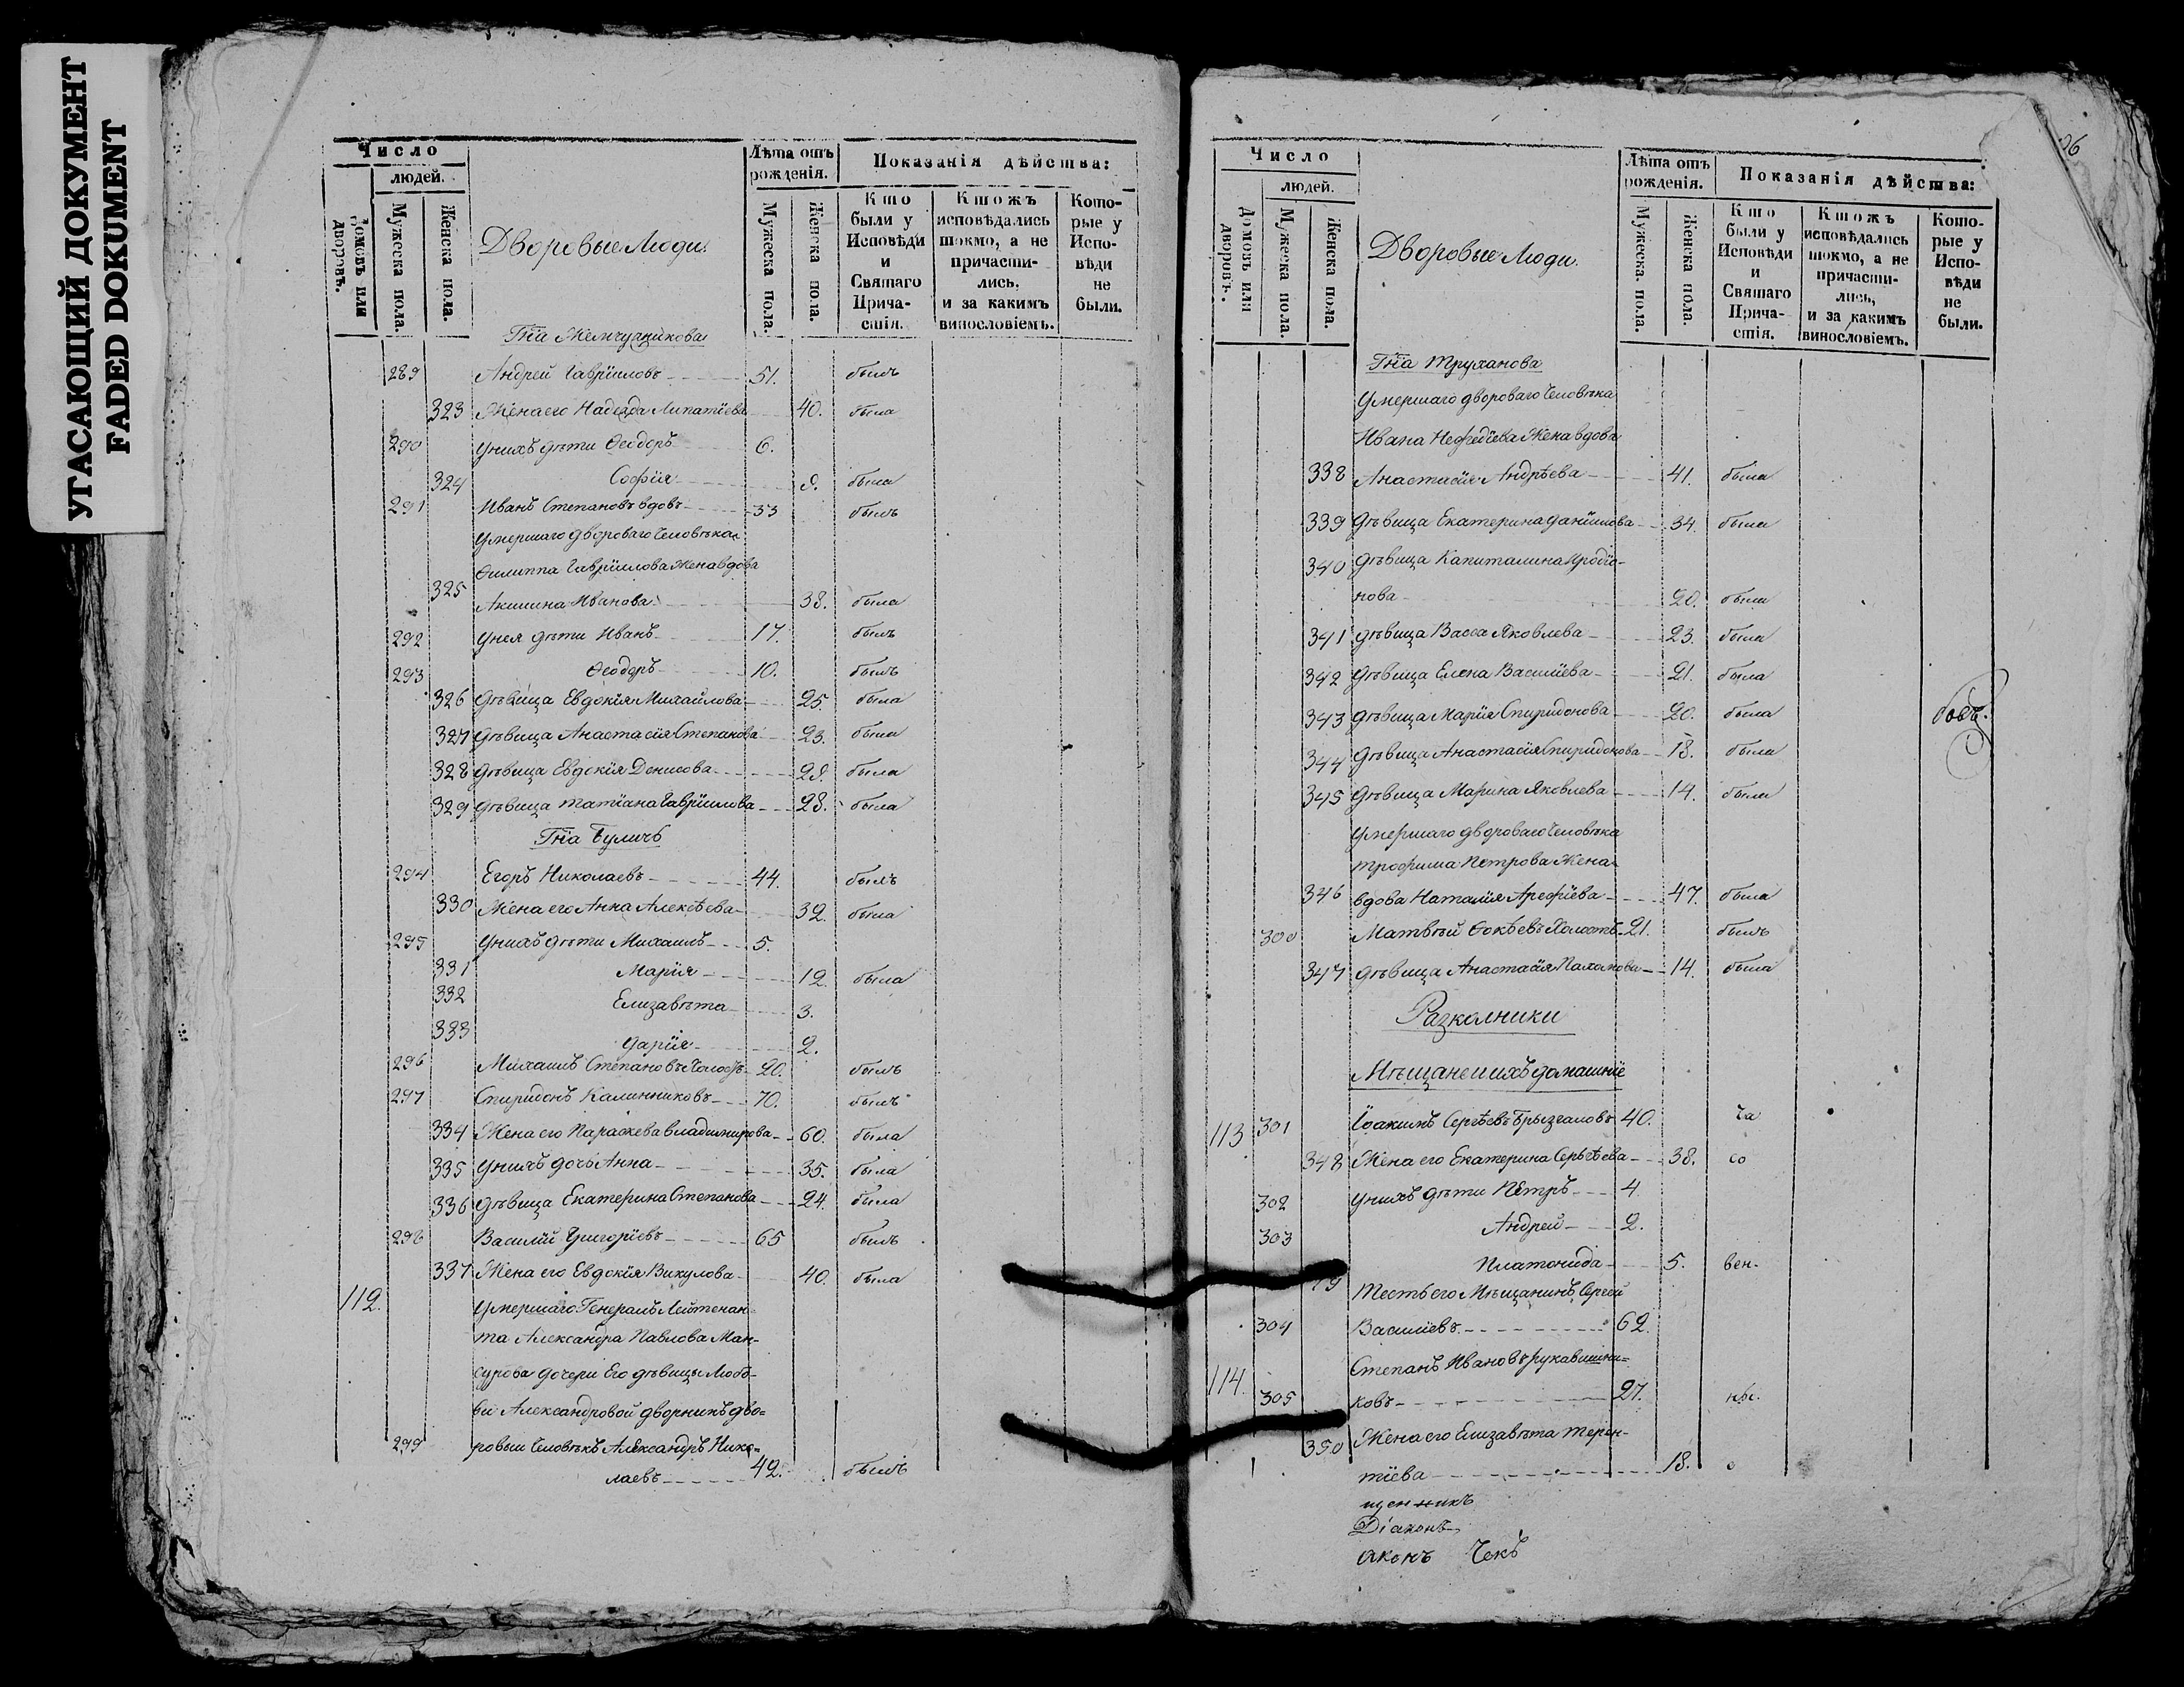 УГАСАЮЩИЙ ДОКУМЕНТ
FADED DOKUMENT
Число
людей.
Домовъ или дворовъ.
Мужеска пола.
Женска пола.
Дворовые Люди.
Лѣта отъ рожденія.
Мужеска пола.
Женска пола.
Показанія дѣйства:
Кто были у Исповѣди и Святаго Причастія.
Ктожъ исповѣдались токмо, а не причастились, и за какимъ винословіемъ.
Которые у Исповѣди не были.
Гна Жемчужникова
289 Андрей Гаврїиловъ 51. былъ
323 Жена его Надежда Липатїева 40. была
290 У нихъ дѣти Ѳеодоръ 6.
324 Софїя была
291 Иванъ Степановъ вдовъ 33 былъ
умершаго двороваго человѣка
Филиппа Гаврїилова жена вдова
325 Акилина Иванова 38. была
292 У нея дѣти Иванъ 17. былъ
293 Ѳеодоръ 10. былъ
326 дѣвица Евдокїя Михайлова 25 была
327 дѣвица Анастасїя Степанова 23. была
328 дѣвица Евдокїя Денисова была
329 дѣвица Татїана Гаврїилова 28. была
Гна Буличь
294 Егоръ Николаевъ 44. былъ
330 Жена его Анна Алексѣева 32. была
295 У нихъ дѣти Михаилъ 5.
331 Марїя 12. была
332 Елизавѣта 3.
333 Дарїя 2.
296 Михаилъ Степановъ холостъ 20. былъ
297 Спиридонъ Калинниковъ 70. былъ
334 Жена его Параскева Владимирова 60. была
335 У нихъ дочь Анна 35. была
336 дѣвица Екатерина Степанова 24. была
298 Василїй Григорїевъ 65 былъ
337 Жена его Евдокїя Викулова 40. была
112. Умершаго Генералъ Лейтенан-
та Александра Павлова Ман-
сурова дочери Его дѣвицы Любо-
ви Александровой дворникъ дво-
299 ровый человѣкъ Александръ Нико-
лаевъ 42. былъ
Число
людей.
Домовъ или дворовъ.
Мужеска пола.
Женска пола.
Дворовые Люди.
Лѣта отъ рожденія.
Мужеска пола.
Женска пола.
Показанія дѣйства:
Кто были у Исповѣди и Святаго Причастія.
Ктожъ исповѣдались токмо, а не причастились, и за какимъ винословіемъ.
Которые у Исповѣди не были.
Гна Труханова
Умершаго двороваго человѣка
Ивана Нефедїева жена вдова
338 Анастасїя Андрѣева 41. была
339 дѣвица Екатерина Данїилова 34. была
340 дѣвица Капиталина Иродїо-
нова 20. была
341 дѣвица Васса Яковлева 23. была
342 дѣвица Елена Василїева 21. была
343 дѣвица Марїя Спиридонова 20. была
344 дѣвица Анастасїя Спиридонова 18. была
345 дѣвица Марина Яковлева 14. была
Умершаго двороваго человѣка
Трофима Петрова жена
346 вдова Наталїя Арефїева 47. была
300 Матвѣй холостъ 21. былъ
347 дѣвица Анастасїя Пахомова 14. была
Разколники
Мѣщане и ихъ домашнїе
113 301 Іоакимъ Сергѣевъ Брызгаловъ 40. ча
348 Жена его Екатерина Сергѣева 38. со
302 У нихъ дѣти Петръ 4.
303 Андрей 2.
Платонида 5. вен.
Тесть его Мѣщанинъ Сергей
304 Василїевъ 62.
Степанъ Ивановъ рукавишни-
114. 305 ковъ 27.
350 Жена его Елизавѣта Терен-
тїева 18.
щенникъ
Дїаконъ
аконъ